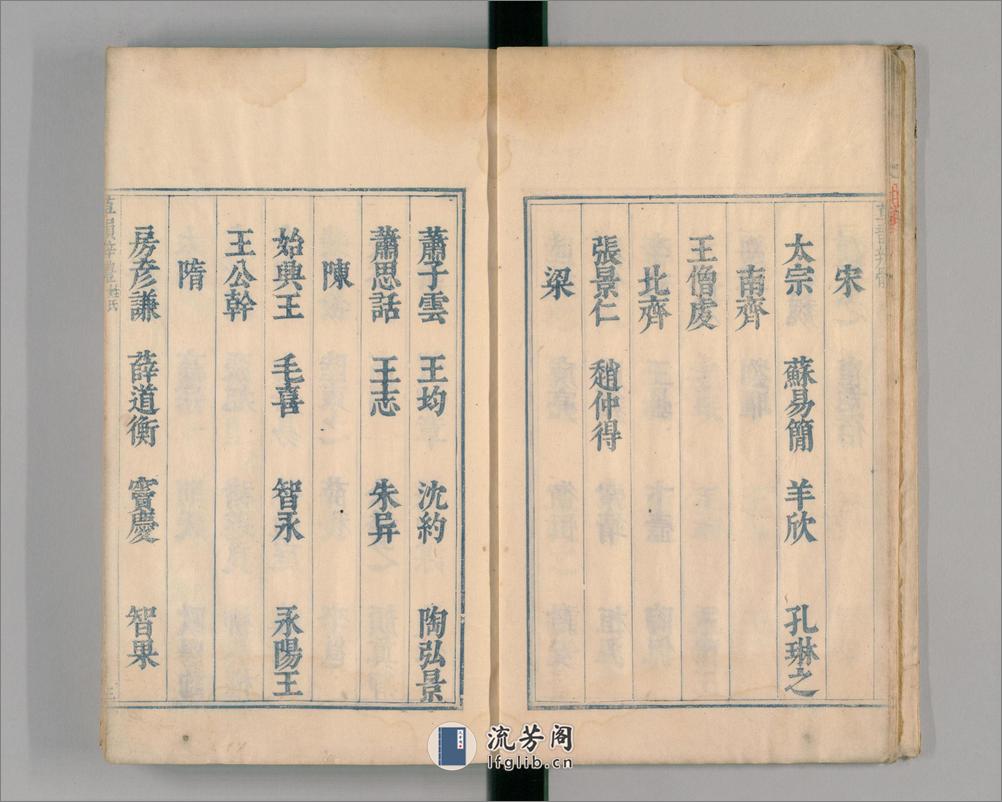 宋
太宗 蘇易簡 羊欣 孔琳之
南齊
王僧虔
北齊
張景仁 趙仲得
梁
蕭子雲 王均 沈約 陶弘景
蕭思話 王志 朱异
陳
始興王 毛喜 智永 永陽王
王公幹
隋
房彦謙 薛道衡 竇慶 智果
流芳阁
lfglib.cn